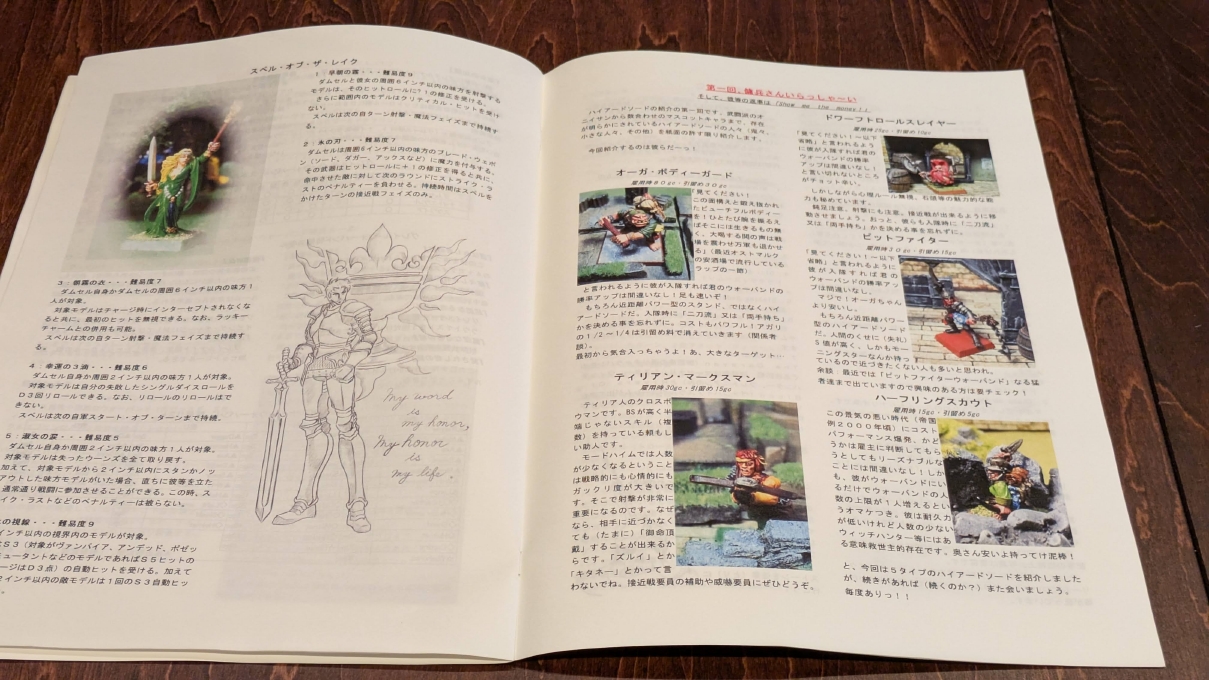 スペル・オブ・ザ・レイク
1：早朝の霧・・・難易度9
ダムセルと彼女の周囲6インチ以内の味方を射撃する
モデルは、そのヒットロールに-1の修正を受ける。
さらに範囲内のモデルはクリティカル・ヒットを受け
ない。
スペルは次の自ターン射撃・魔法フェイズまで持続す
る。
2：氷の刃・・・難易度7
ダムセルは周囲6インチ以内の味方のブレード・ウェポ
ン（ソード、ダガー、アックスなど）に魔力を付与する。
その武器はヒットロールに+1の修正を得ると共に、
命中させた敵に対して次のラウンドにストライク・ラ
ストのペナルティーを負わせる。持続時間はスペルを
かけたターンの接近戦フェイズのみ。
3：朝霧の衣・・・難易度7
ダムセル自身かダムセルの周囲6インチ以内の味方1
人が対象。
対象モデルはチャージ時にインターセプトされなくな
ると共に、最初のヒットを無視できる。なお、ラッキー
チャームとの併用も可能。
スペルは次の自ターン射撃・魔法フェイズまで持続す
る。
4：幸運の3滴・・・難易度6
ダムセル自身か周囲2インチ以内の味方1人が対象。
対象モデルは自分の失敗したシングルダイスロールを
D3回リロールできる。なお、リロールのリロールはで
きない。
スペルは次の自軍スタート・オブ・ターンまで持続。
5：淑女の涙・・・難易度5
ダムセル自身か周囲2インチ以内の味方1人が対象。
対象モデルは失ったウーンズを全て取り戻す。
加えて、対象モデルから2インチ以内にスタンかノッ
アウトした味方モデルがいた場合、直ちに彼等を立た
通常通り戦闘に参加させることができる。この時、ス
イク・ラストなどのペナルティーは被らない。
の視線・・・難易度9
インチ以内の視界内のモデルが対象。
S3（対象がヴァンパイア、アンデッド、ポゼッ
ュータントなどのモデルであればS5ヒットの
ージはD3点）の自動ヒットを受ける。加えて
2インチ以内の敵モデルは1回のS3自動ヒッ
。
My word
is
my honor,
My honor
is
my life.
第一回、傭兵さんいらっしゃ〜い
そして、彼等の返事は「Show me the money！」
ハイアードソードの紹介の第一回です。武闘派のオ
ニイサンから数合わせのマスコットキャラまで、存在
が明らかにされているハイアードソードの人々（鬼々、
小さな人々、その他）を紙面の許す限り紹介します。
今回紹介するのは彼らだーっ！
オーガ・ボディーガード
雇用時80gc・引留め30gc
「見てください！
この面構えと鍛え抜かれ
たビューチフルボディー
を！ひとたび腕を振るえ
ばそこには生きるもの無
く、大喝する間の声は戦
場を震わせ万軍も退かせ
る」（最近オストマルク
の安酒場で流行している
ラップの一節）
と言われるように彼が入隊すれば君のウォーバンドの
勝率アップは間違いなし！足も速いぞ！
もちろん近距離パワー型のスタンド、ではなくハイ
アードソードだ。入隊時に「二刀流」又は「両手持ち」
かを決める事を忘れずに。コストもパワフル！アガリ
の1/2〜1/4は引留め料で消えていきます（関係者
談）。
最初から気合入っちゃうよ！あ、大きなターゲット…
ティリアン・マークスマン
雇用時30gc・引留め15gc
ティリア人のクロスボ
ウマンです。BSが高く半
端じゃないスキル（複
数）を持っている頼もし
い助人です。
モードハイムでは人数
が少なくなるということ
は戦略的にも心情的にも
ガックリ度が大きいで
す。そこで射撃が非常に
重要になるのです。なぜ
なら、相手に近づかなく
ても（たまに）「御命頂
戴」することが出来るか
らです。「ズルイ」とか
「キタネー」とかって言
わないでね。接近戦要員の補助や威嚇要員にぜひどうぞ。
ドワーフトロールスレイヤー
雇用時25gc・引留め10gc
「見てください！〜以下
省略」と言われるように
に彼が入隊すれば君の
ウォーバンドの勝率
アップは間違いなし！
と言い切れないところ
がチョット辛い。
しかしながら心理ルール無視、石頭等の魅力的な能
力も秘めています。
鈍足注意、射撃にも注意。接近戦が出来るように移
動させましょう。おっと、彼らも入隊時に「二刀流」
又は「両手持ち」かを決める事を忘れずに。
ピットファイター
雇用時30gc・引留め15gc
「見てください！〜以下
省略」と言われるように
彼が入隊すれば君の
ウォーバンドの勝率アッ
プは間違いなし。
マジで！オーガちゃん
より安いし。
もちろん近距離パワー
型のハイアードソード
だ、人間のくせに（失礼）
S値が高く、しかもモー
ニングスターなんか持っ
ていて近づきたくない人も多いと思われ。
余談：最近では「ピットファイターウォーバンド」なる猛
者達まで出ていますので興味のある方は要チェック！
ハーフリングスカウト
雇用時15gc・引留め5gc
この景気の悪い時代（帝国
例2000年頃）にコスト
パフォーマンス爆発、かど
うかは雇主に判断してもら
うとしてもリーズナブルな
ことには間違いなし！しか
も、彼がウォーバンドにい
るだけでウォーバンドの人
数の上限が1人増えるとい
うオマケつき。彼は耐久力
が低いけれど人数の少ない
ウィッチハンター等にはあ
る意味救世主的存在です。奥さん安いよ持ってけ泥棒！
と、今回は5タイプのハイアードソードを紹介しました
が、続きがあれば（続くのか？）また会いましょう。
毎度ありっ！！